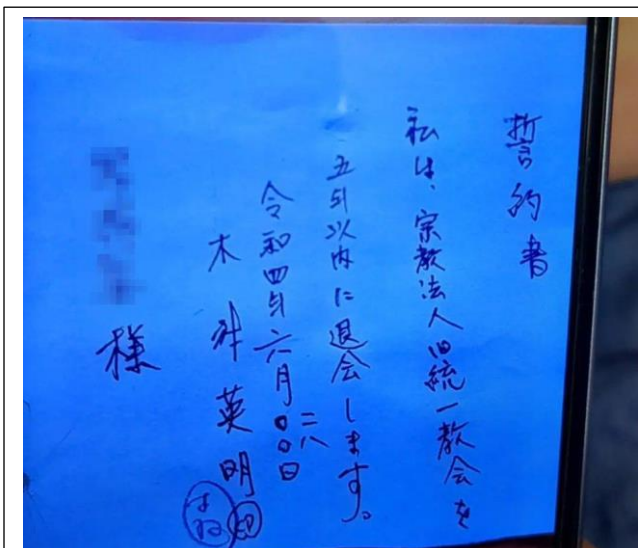 誓約書
私は、宗教法人旧統一教会を
五年以内に退会します。
令和四年六月二八日
木村英明 印
様